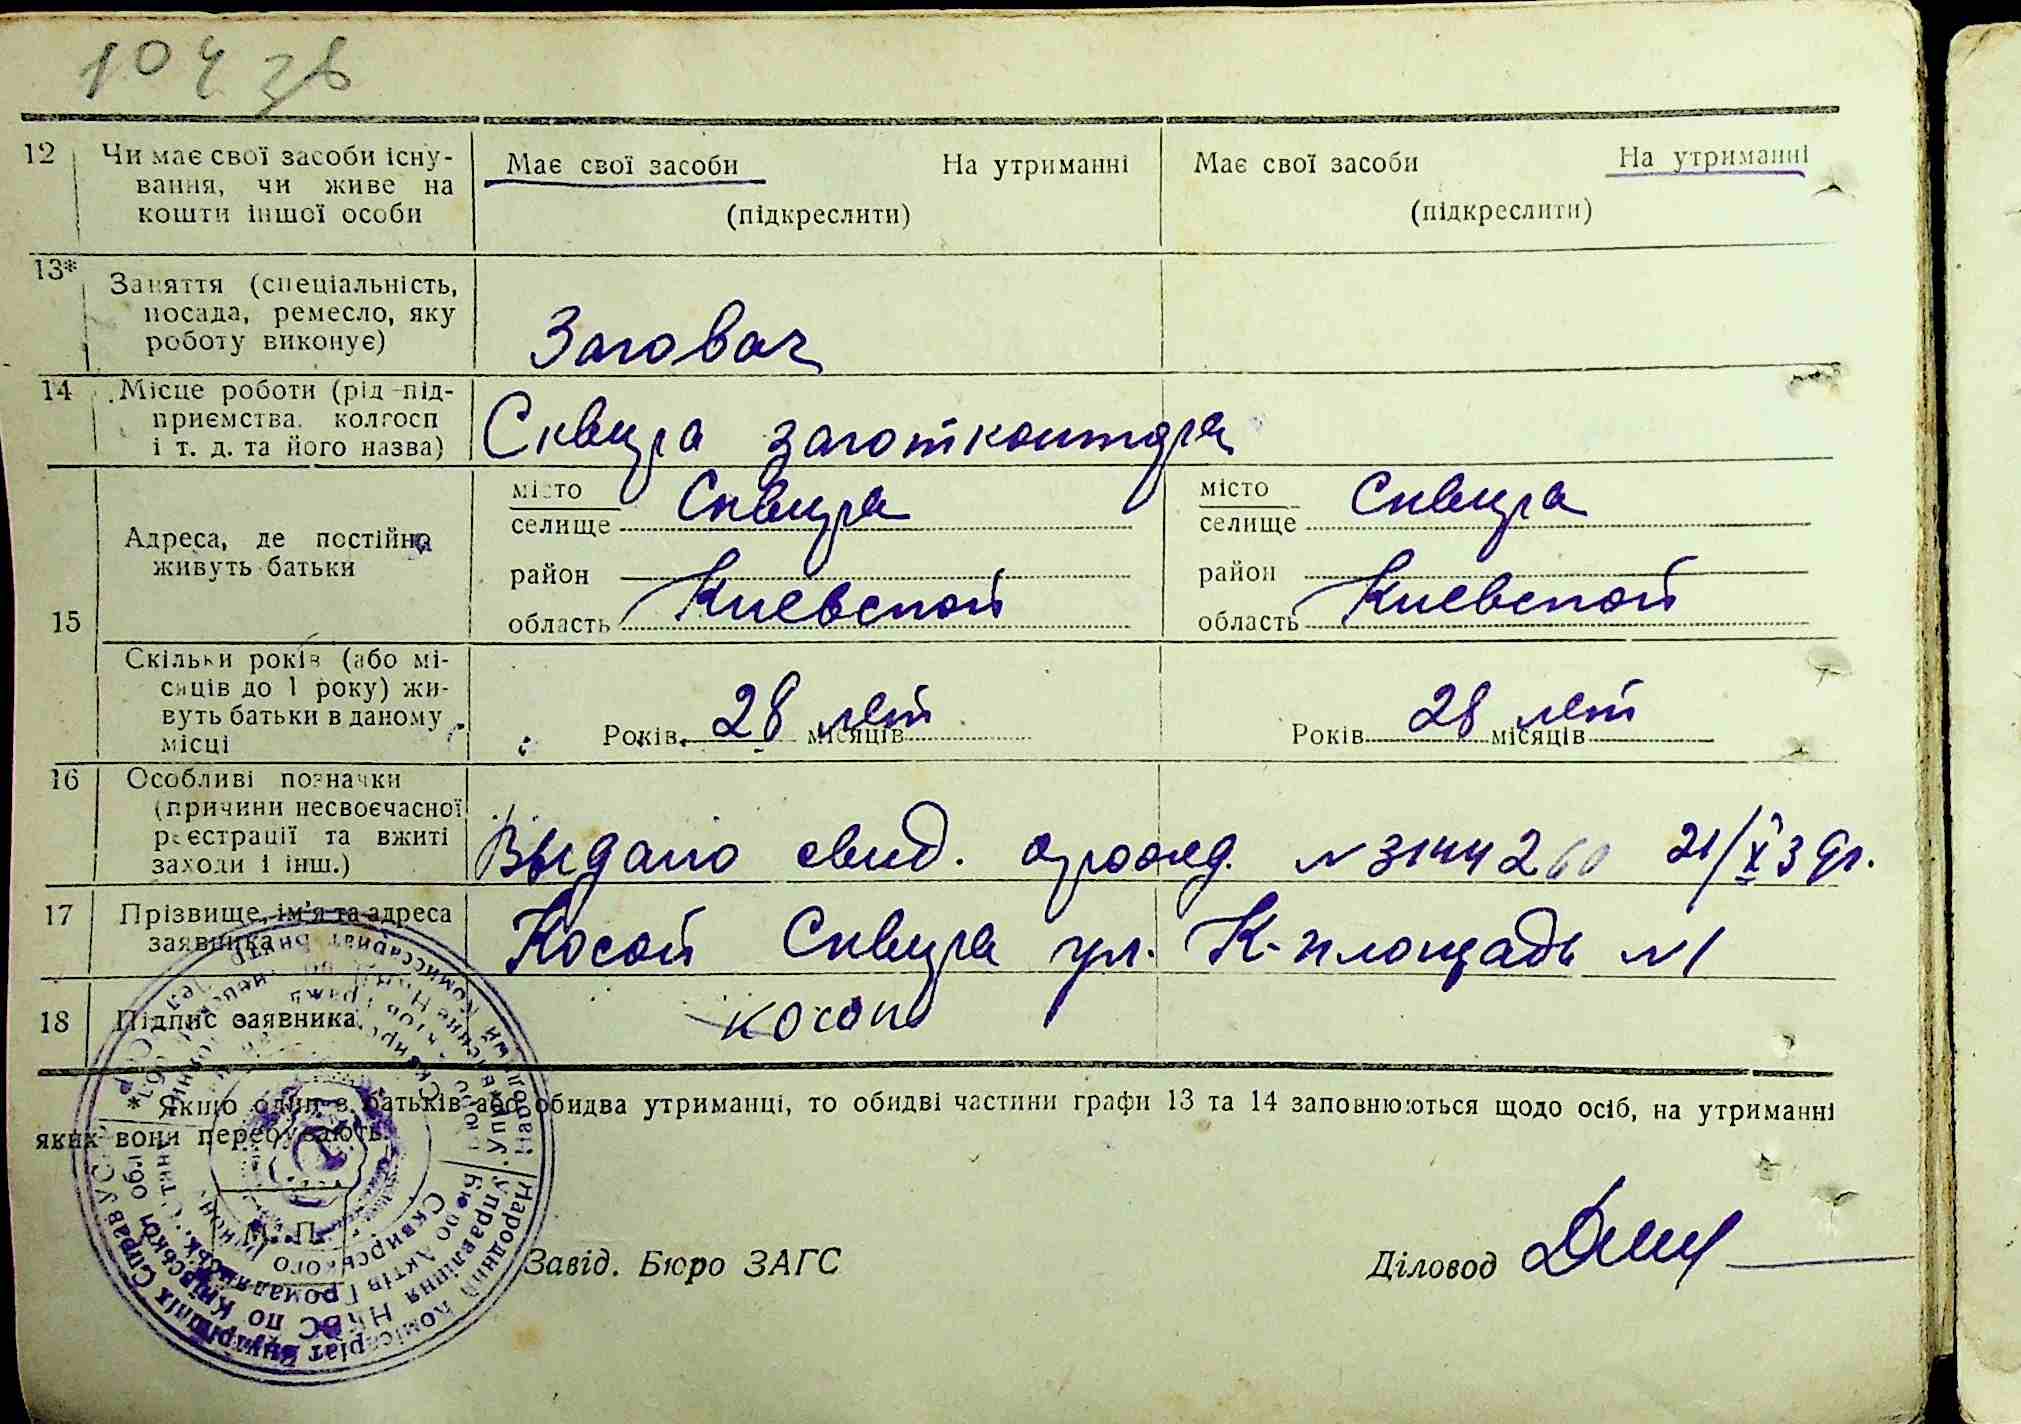 104 зв
12 Чи має свої засоби існу- Має свої засоби На утриманні Має свої засоби На утриманні
вання, чи живе на
кошти іншої особи (підкреслити) (підкреслити)
13* Заняття (спеціальність,
посада, ремесло, яку
роботу виконує) Заговач
14 Місце роботи (рід під-
приємства, колгосп Сквира заготконтора
і т. д. та його назва)
місто Сквира місто Сквира
селище селище
15 Адреса, де постійно
живуть батьки район район
область Киевской область Киевской
Скільки років (або мі-
сяців до 1 року) жи-
вуть батьки в даному Років 28 лет місяців Років 28 лет місяців
місці
16 Особливі позначки
(причини несвоєчасної
реєстрації та вжиті Выдано свид. о рожд. N 3144260 21/X
заходи і інш.)
17 Прізвище, ім'я та адреса
заявника Косой Сквира ул. К-площадь N1
18 Підпис заявника косой
* Якщо один з батьків або обидва утриманці, то обидві частини графи 13 та 14 заповнюються щодо осіб, на утриманні
яких вони перебувають.
М. П.
Завід. Бюро ЗАГС Діловод
Народний Комісаріат Внутрішніх Справ УСРР
Управління НКВС по Київській обл.
Бюро Актів Громадянськ. Стану
Сквирського району